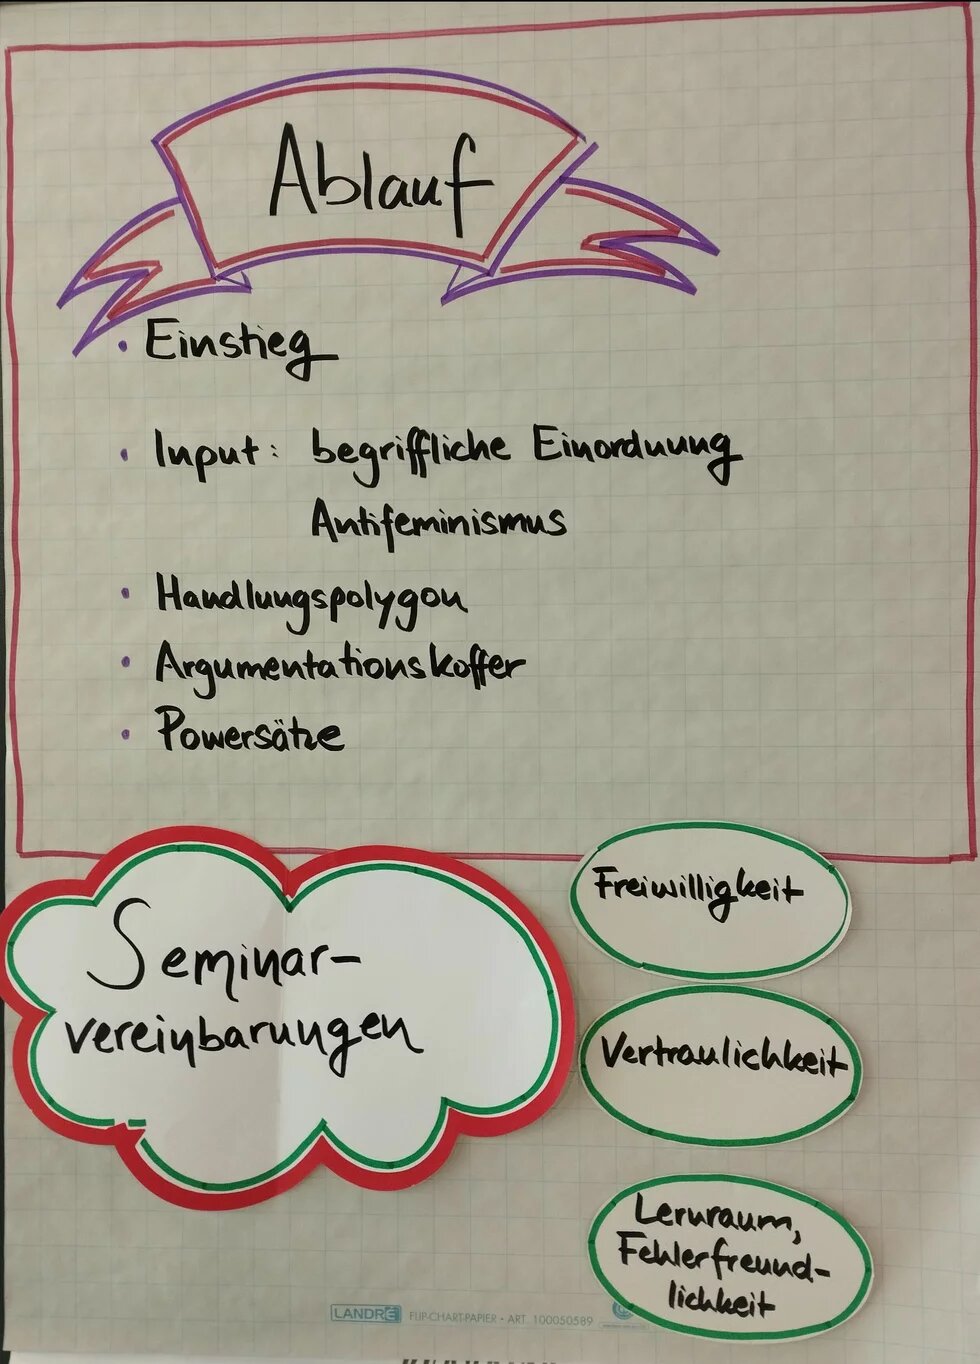 Ablauf
• Einstieg
• Input: begriffliche Einordnung
Antifeminismus
• Handlungspolygon
• Argumentationskoffer
• Powersätze
Seminar-
vereinbarungen
Freiwilligkeit
Vertraulichkeit
Lernraum,
Fehlerfreund-
lichkeit
LANDRÉ FLIP-CHART-PAPIER • ART. 100050589